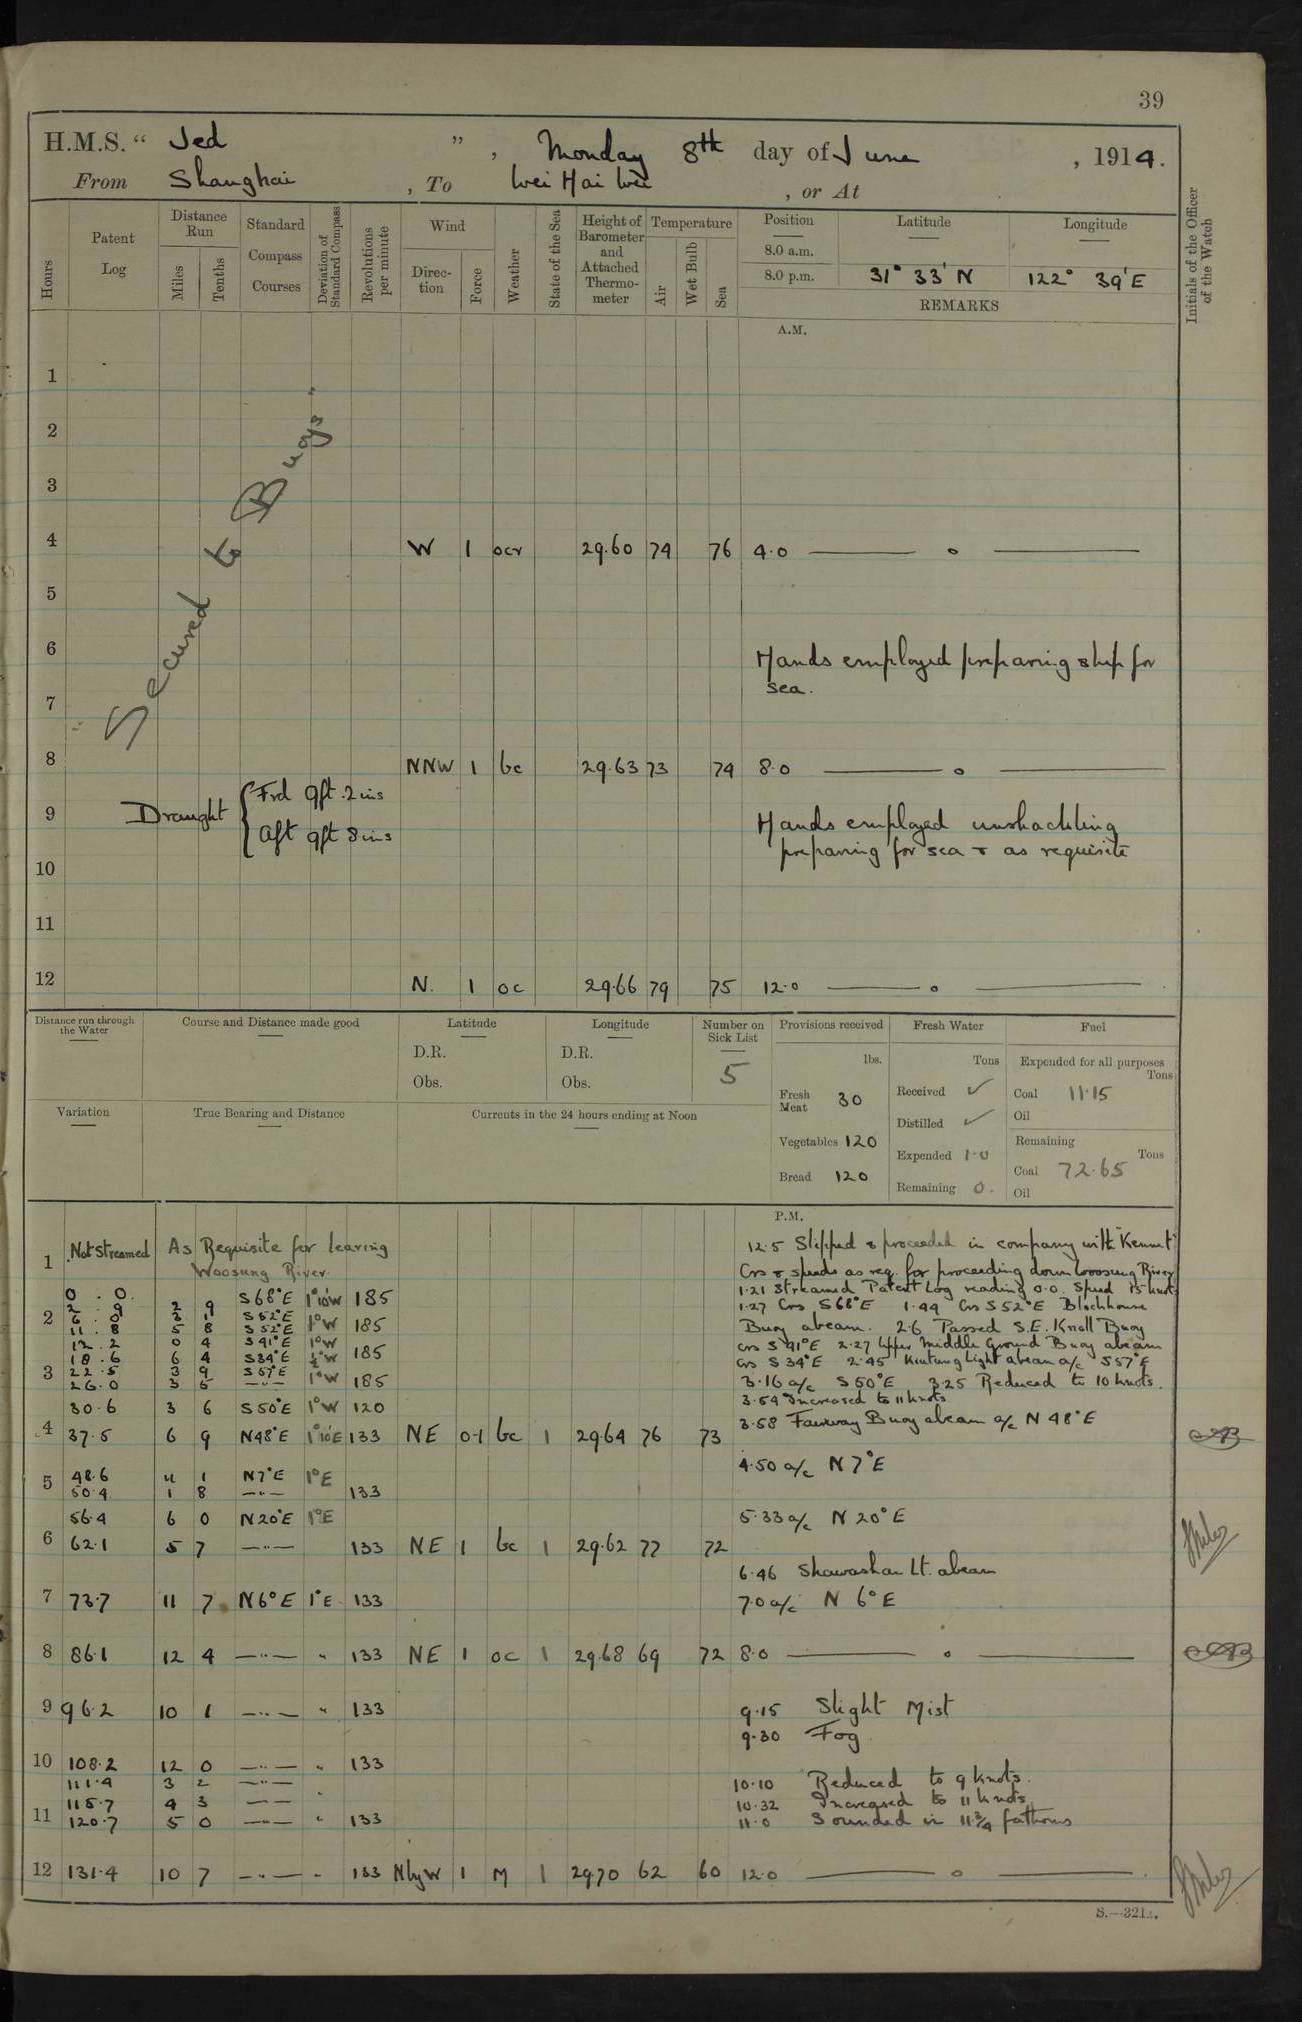 39
H.M.S. "Jed", Monday 8th day of June, 1914.
From Shanghai, To Wei Hai Wei, or At
Hours
Patent Log
Distance Run
Miles
Tenths
Standard Compass Courses
Deviation of Standard Compass
Revolutions per minute
Wind
Direction
Force
Weather
State of the Sea
Height of Barometer and Attached Thermometer
Temperature
Air
Wet Bulb
Sea
Position
Latitude
Longitude
8.0 a.m.
8.0 p.m. 31° 33' N 122° 39' E
REMARKS
Initials of the Officer of the Watch
A.M.
1
2
3
Secured to Buoys"
4 W 1 ocr 29.60 74 76 4.0 — o —
5
6 Hands employed preparing ship for
sea.
7
8 NNW 1 bc 29.63 73 74 8.0 — o —
Draught { Frd 9ft. 2ins
Aft 9ft 8ins
9 Hands employed unshackling
preparing for sea & as requisite
10
11
12 N. 1 oc 29.66 79 75 12.0 — o —
Distance run through the Water
Course and Distance made good
Latitude
D.R.
Obs.
Longitude
D.R.
Obs.
Number on Sick List
5
Provisions received
lbs.
Fresh Meat 30
Vegetables 120
Bread 120
Fresh Water
Tons
Received ✓
Distilled ✓
Expended 1.0
Remaining 0.
Fuel
Expended for all purposes
Tons
Coal 11.15
Oil
Remaining
Tons
Coal 72.65
Oil
Variation
True Bearing and Distance
Currents in the 24 hours ending at Noon
P.M.
1 Not Streamed As Requisite for leaving
Woosung River
12.5 Slipped & proceeded in company with "Kennet"
Crs & speeds as req. for proceeding down Woosung River
0.0. S68°E 1°10'W 185 1.21 Streamed Patent Log reading 0.0. Speed 15 knots
2 2.9 2 9 S52°E 1.27 Crs S68°E 1.44 Crs S52°E Blockhouse
6.0 3 1 S52°E 1°W 185 Buoy abeam. 2.6 Passed S.E. Knoll Buoy
11.8 5 8 S41°E 1°W crs S41°E 2.27 Upper Middle Ground Buoy abeam
12.2 0 4 S34°E ½°W 185 Crs S34°E 2.45 Kiutung Light abeam a/c S57°E
18.6 6 4 S57°E 1°W
3 22.5 3 9 —"— 185 3.16 a/c S50°E 3.25 Reduced to 10 knots.
26.0 3 5 3.54 Increased to 11 knots
30.6 3 6 S50°E 1°W 120 3.58 Fairway Buoy abeam a/c N48°E
4 37.5 6 9 N48°E 1°10'E 133 NE 0-1 bc 1 29.64 76 73
4.50 a/c N7°E
5 48.6 11 1 N7°E 1°E
50.4 1 8 —"— 133
56.4 6 0 N20°E 1°E 5.33 a/c N20°E
6 62.1 5 7 —"— 133 NE 1 bc 1 29.62 77 72
6.46 Shawashan Lt. abeam
7 73.7 11 7 N6°E 1°E 133 7.0 a/c N 6°E
8 86.1 12 4 —"— " 133 NE 1 oc 1 29.68 69 72 8.0 — o —
9 96.2 10 1 —"— " 133 9.15 Slight Mist
9.30 Fog
10 108.2 12 0 —"— " 133
111.4 3 2 —"— 10.10 Reduced to 9 knots.
115.7 4 3 —"— " 10.32 Increased to 11 knots
11 120.7 5 0 —"— " 133 11.0 Sounded in 11¾ fathoms
12 131.4 10 7 —"— " 133 NbyW 1 M 1 29.70 62 60 12.0 — o —
S.—321.